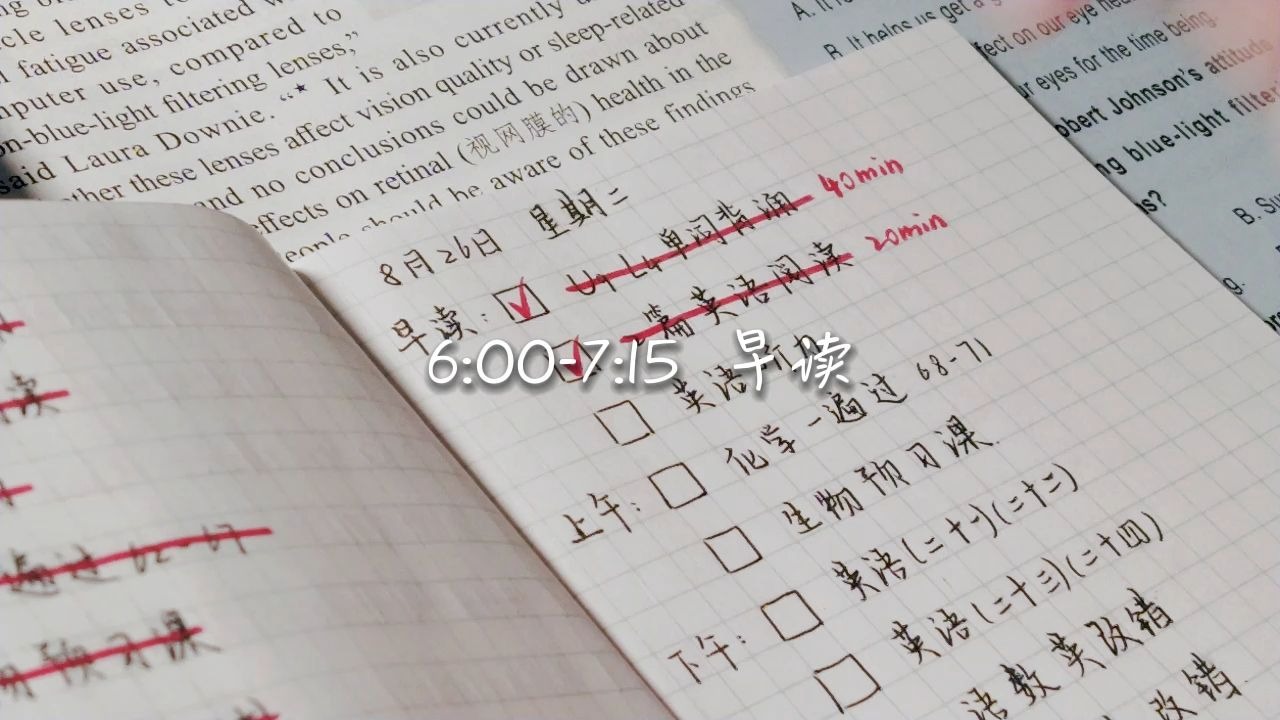 cle lenses to
l fatigue associated w
mputer use, compared to
on-blue-light filtering lenses,"
said Laura Downie. "★ It is also currently
ther these lenses affect vision quality or sleep-related
and no conclusions could be drawn about
effects on retinal (视网膜的) health in the
people should be aware of these findings
B. It helps us get a
fect on our eye hea
ur eyes for the time being.
obert Johnson's attitude
ng blue-light filter
s?
B. Su
g.
8月26日 星期二
早读: U1 L4 单词背诵 40min
一篇英语阅读 20min
英语听力
6:00-7:15 早读
上午: 化学一遍过 68-71
生物预习课
英语(二十一)(二十二)
下午: 英语(二十三)(二十四)
语数英改错
改错
读
遍过 62-67
预习课